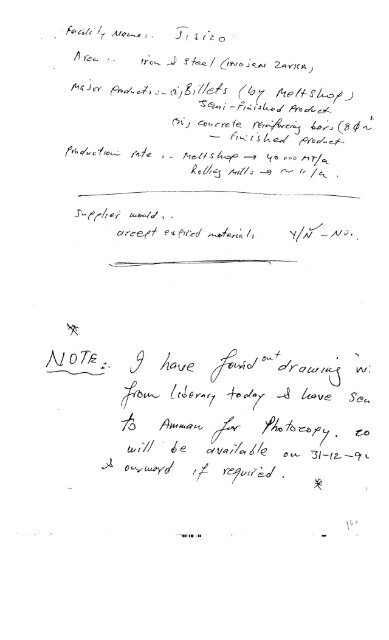 Facility Name:. Jisico
Area :. Iron & Steel (
Major Products :- i, Billets (by Meltshop)
Semi-Finished Product
ii, concrete reinforcing bars (8 φ ~
— finished product.
Production rate :. Meltshop → 40 000 MT/a
Rolling Mills → ~ 11/a.
Supplier would :.
accept expired materials Y/N – No.
NOTE:. I have found out drawing
from liberary today & have
to Amman for Photocopy.
will be available on 31-12-9
& onward if required.